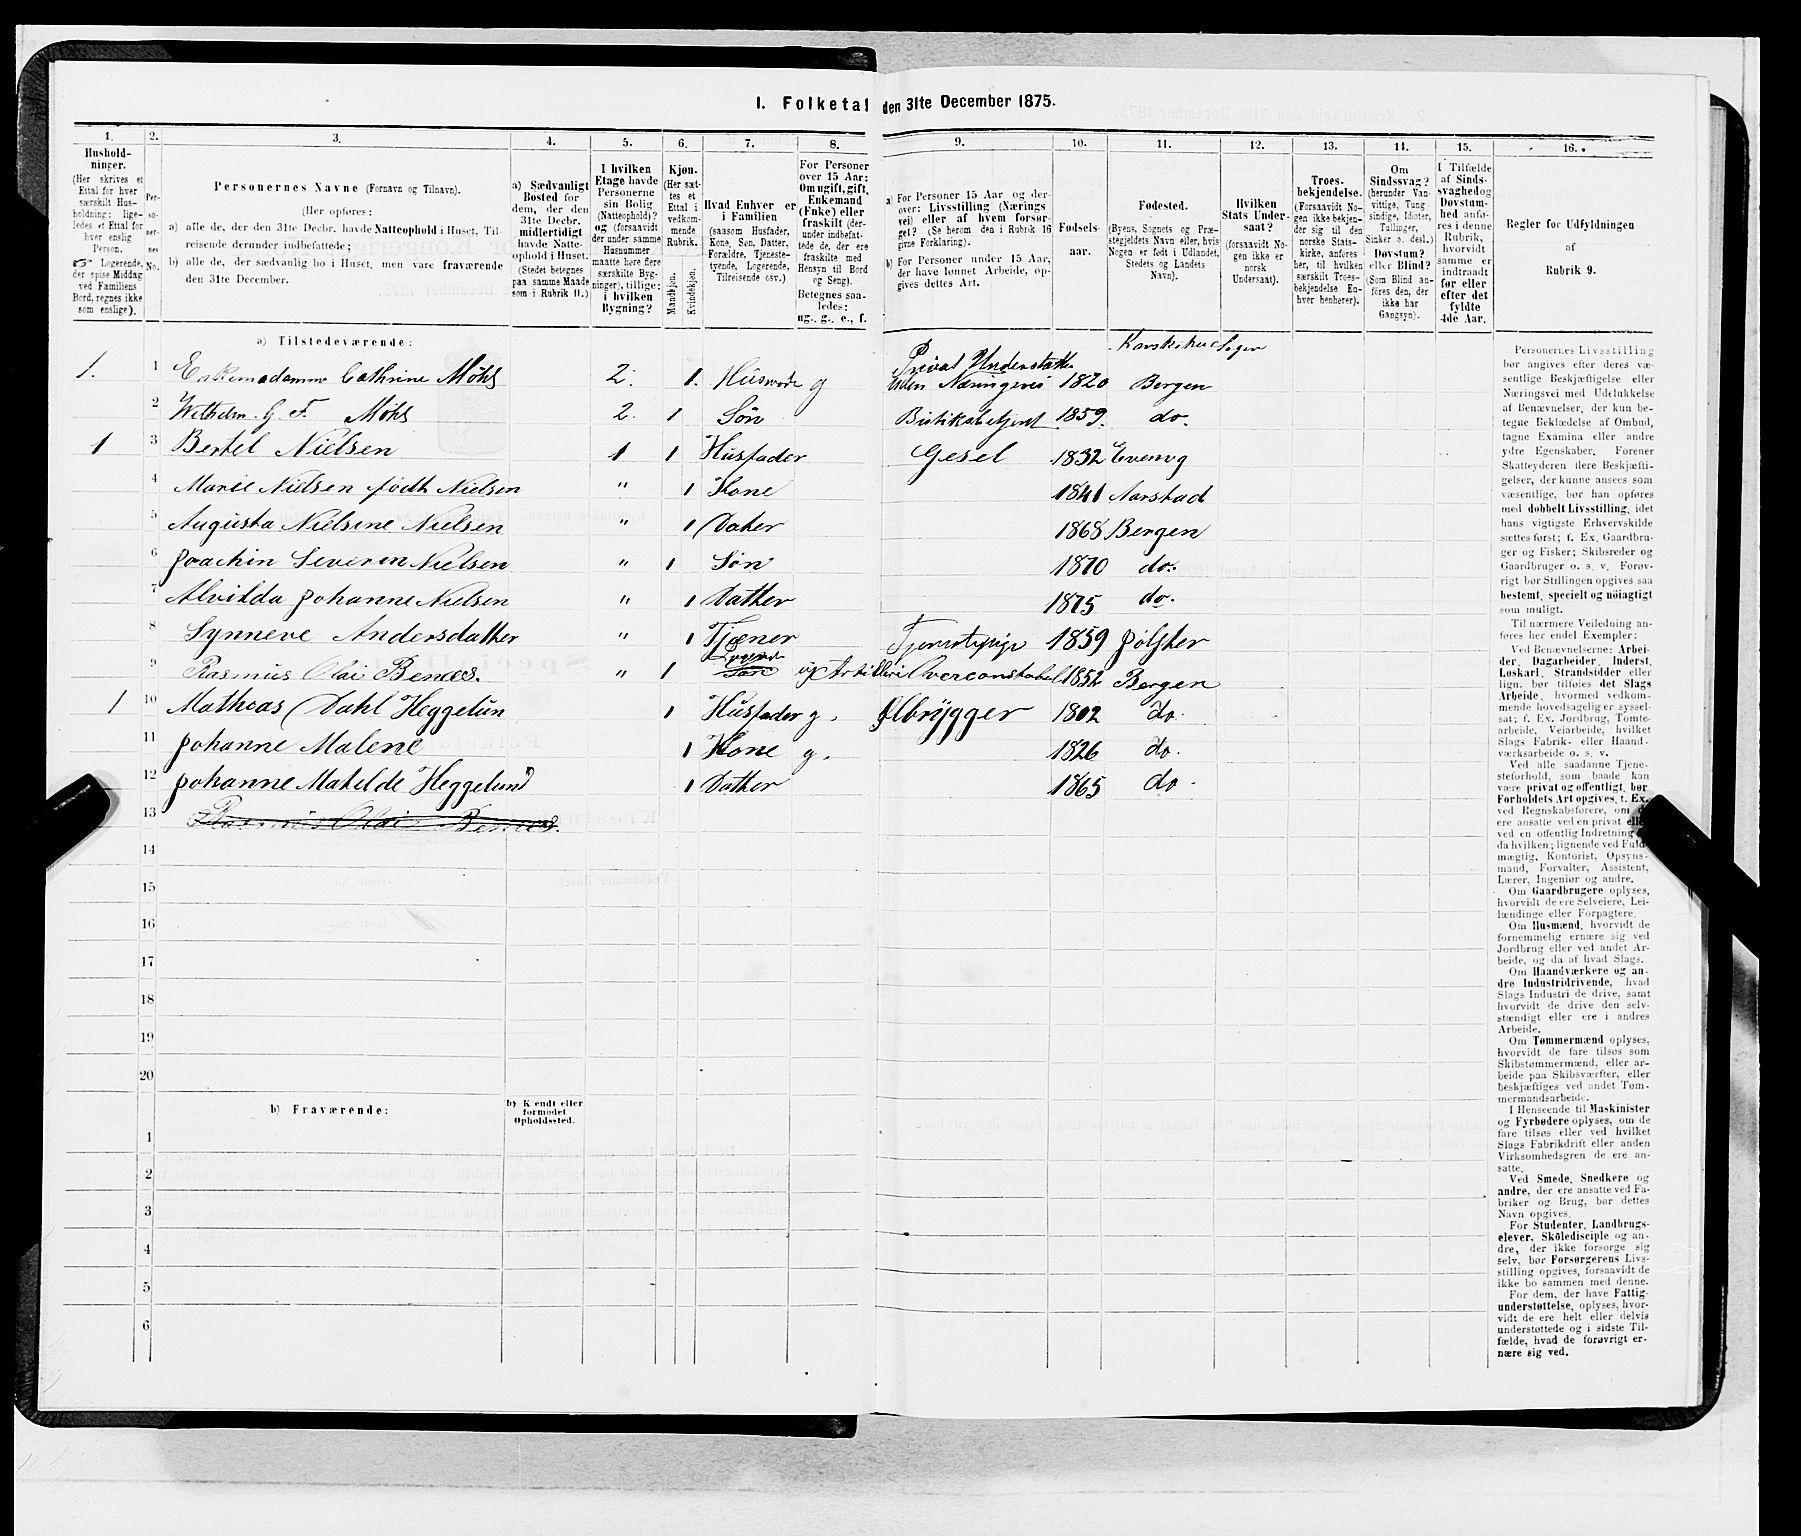 1. Folketal den 31te December 1875.
1. 2. 3. 4. 5. 6. 7. 8. 9. 10. 11. 12. 13. 14. 15. 16.
Hushold-
ninger.
(Her skrives et
Ettal for hver
særskilt Hus-
holdning; lige-
ledes et Ettal for
hver enslig
Person.
☞ Logerende,
der spise Middag
ved Familiens
Bord, regnes ikke
som enslige).
Per-
so-
ner-
nes
No.
Personernes Navne (Fornavn og Tilnavn).
(Her opføres:
a) alle de, der den 31te Decbr. havde Natteophold i Huset, Til-
reisende derunder indbefattede;
b) alle de, der sædvanlig bo i Huset, men vare fraværende
den 31te December.
a) Sædvanligt
Bosted for
dem, der den
31te Decbr.
midlertidigt
havde Natte-
ophold i Huset.
(Stedet betegnes
paa samme Maade
som i Rubrik 11.)
I hvilken
Etage havde
Personerne
sin Bolig
(Natteophold)?
og (forsaavidt
der under samme
Husnummer
maatte høre flere
særskilte Byg-
ninger), tillige:
i hvilken
Bygning?
Kjøn.
(Her sæt-
tes et
Ettal i
vedkom-
mende
Rubrik.
Mandkjøn.
Kvindekjøn.
Hvad Enhver er
i Familien
(saasom Husfader,
Kone, Søn, Datter,
Forældre, Tjeneste-
tyende, Logerende,
Tilreisende osv.)
For Personer
over 15 Aar:
Om ugift, gift,
Enkemand
(Enke) eller
fraskilt (der-
under indbefat-
tede de, der ere
fraskilte med
Hensyn til Bord
og Seng).
Betegnes saa-
ledes:
ug., g., e., f.
a) For Personer 15 Aar og der-
over: Livsstilling (Nærings
vei) eller af hvem forsør-
get? (Se herom den i Rubrik 16
givne Forklaring).
b) For Personer under 15 Aar,
der have lønnet Arbeide, op-
gives dettes Art.
Fødsels-
aar.
Fødested.
(Byens, Sognets og Præ-
stegjeldets Navn eller, hvis
Nogen er født i Udlandet,
Stedets og Landets
Navn).
Hvilken
Stats Under-
saat?
(forsaavidt No-
gen ikke er
norsk
Undersaat).
Troes-
bekjendelse.
(Forsaavidt No-
gen ikke bekjen-
der sig til den
norske Stats-
kirke, anføres
her, til hvilken
særskilt Troes-
bekjendelse En-
hver henhører).
Om
Sindssvag?
(herunder Van-
vittige, Tung
sindige, Idioter,
Tullinger,
Sinker o. desl.)
Døvstum?
eller Blind?
(Som Blind an-
føres den, der
ikke har
Gangsyn).
I Tilfælde
af Sinds-
svaghed og
Døvstum-
hed anfø-
res i denne
Rubrik,
hvorvidt
samme er
indtraadt
før eller
efter det
fyldte
4de Aar.
Regler for Udfyldningen
af
Rubrik 9.
a) Tilstedeværende:
Privat Understøttelse
1. 1 Enkemadamme Cathrine Møhl 2. 1. Husmode g Uden Næringsvei 1820 Bergen
2 Wilhelm G. F. Møhl 2. 1 Søn Butiksbetjent 1859. do.
1 3 Bertel Nielsen 1 1 Husfader Gesel 1832 Evenvg
4 Marie Nielsen født Nielsen " 1 Kone 1841 Aarstad
5 Augusta Nielsine Nielsen " 1 Dater 1868 Bergen
6 Joachin Severin Nielsen " 1 Søn 1870 do.
7 Alvilda Johanne Nielsen " 1 Datter 1875 do.
8 Synneve Andersdatter " 1 Tjæner Tjenestepige 1859 Jølster
9 Rasmus Olai Benæs. " 1 ug Artilleri Overconstabel 1852 Bergen
1 10 Matheas Dahl Heggelun 1 Husfader g. Ølbrygger 1802 do.
11 Johanne Malene 1 Kone g. 1826 do.
12 Johanne Matelde Heggelund 1 Datter 1865 do.
13 Rasmus Olai Benæs.
14
15
16
17
18
19
20
b) Fraværende:
b) Kjendt eller
formodet
Opholdssted.
1
2
3
4
5
6
Personernes Livsstilling
bør angives efter deres væ-
sentlige Beskjæftigelse eller
Næringsvei med Udelukkelse
af Benævnelser, der kun be-
tegne Beklædelse af Ombud,
tagne Examina eller andre
ydre Egenskaber. Forener
Skatteyderen flere Beskjæfti-
gelser, der kunne ansees som
væsentlige, bør han opføres
med dobbelt Livsstilling, idet
hans vigtigste Erhvervskilde
sættes først; f. Ex. Gaardbru-
ger og Fisker; Skibsreder og
Gaardbruger o. s. v. Forøv-
rigt bør Stillingen opgives saa
bestemt, specielt og nøiagtigt
som muligt.
Til nærmere Veiledning an-
føres her endel Exempler:
Ved Benævnelserne: Arbei-
der, Dagarbeider, Inderst,
Løskarl, Strandsidder eller
lign. bør tilføies det Slags
Arbeide, hvormed vedkom-
mende hovedsagelig er syssel-
sat; f. Ex. Jordbrug, Tomte-
arbeide, Veiarbeide, hvilket
Slags Fabrik- eller Haand-
værksarbeide o. s. v.
Ved alle saadanne Tjene-
steforhold, som baade kan
være privat og offentligt, bør
Forholdets Art opgives, t. Ex.
ved Regnskabsførere, om de
ere ansatte ved en privat eller
ved en offentlig Indretning og
da hvilken; lignende ved Fuld-
mægtig, Kontorist, Opsyns-
mand, Forvalter, Assistent,
Lærer, Ingeniør og andre.
Om Gaardbrugere oplyses,
hvorvidt de ere Selveiere, Lei-
lændinge eller Forpagtere.
Om Husmænd, hvorvidt de
fornemmelig ernære sig ved
Jordbrug eller ved andet Ar-
beide, og da af hvad Slags.
Om Haandværkere og an-
dre Industridrivende, hvad
Slags Industri de drive, samt
hvorvidt de drive den selv-
stændigt eller ere i andres
Arbeide.
Om Tømmermænd oplyses,
hvorvidt de fare tilsøs som
Skibstømmermænd, eller ar-
beide paa Skibsværfter, eller
beskjæftiges ved andet Tøm-
mermandsarbeide.
I Henseende til Maskinister
og Fyrbødere oplyses, om de
fare tilsøs eller ved hvilket
Slags Fabrikdrift eller anden
Virksomhedsgren de ere an-
satte.
Ved Smede, Snedkere og
andre, der ere ansatte ved Fa-
briker og Brug, bør dettes
Navn opgives.
For Studenter, Landbrugs-
elever, Skoledisciple og an-
dre, der ikke forsørge sig
selv, bør Forsørgerens Livs-
stilling opgives, forsaavidt de
ikke bo sammen med denne.
For dem, der have Fattig-
understøttelse, oplyses, hvor-
vidt de ere helt eller delvis
understøttede og i sidste Til-
fælde, hvad de forøvrigt er-
nære sig ved.